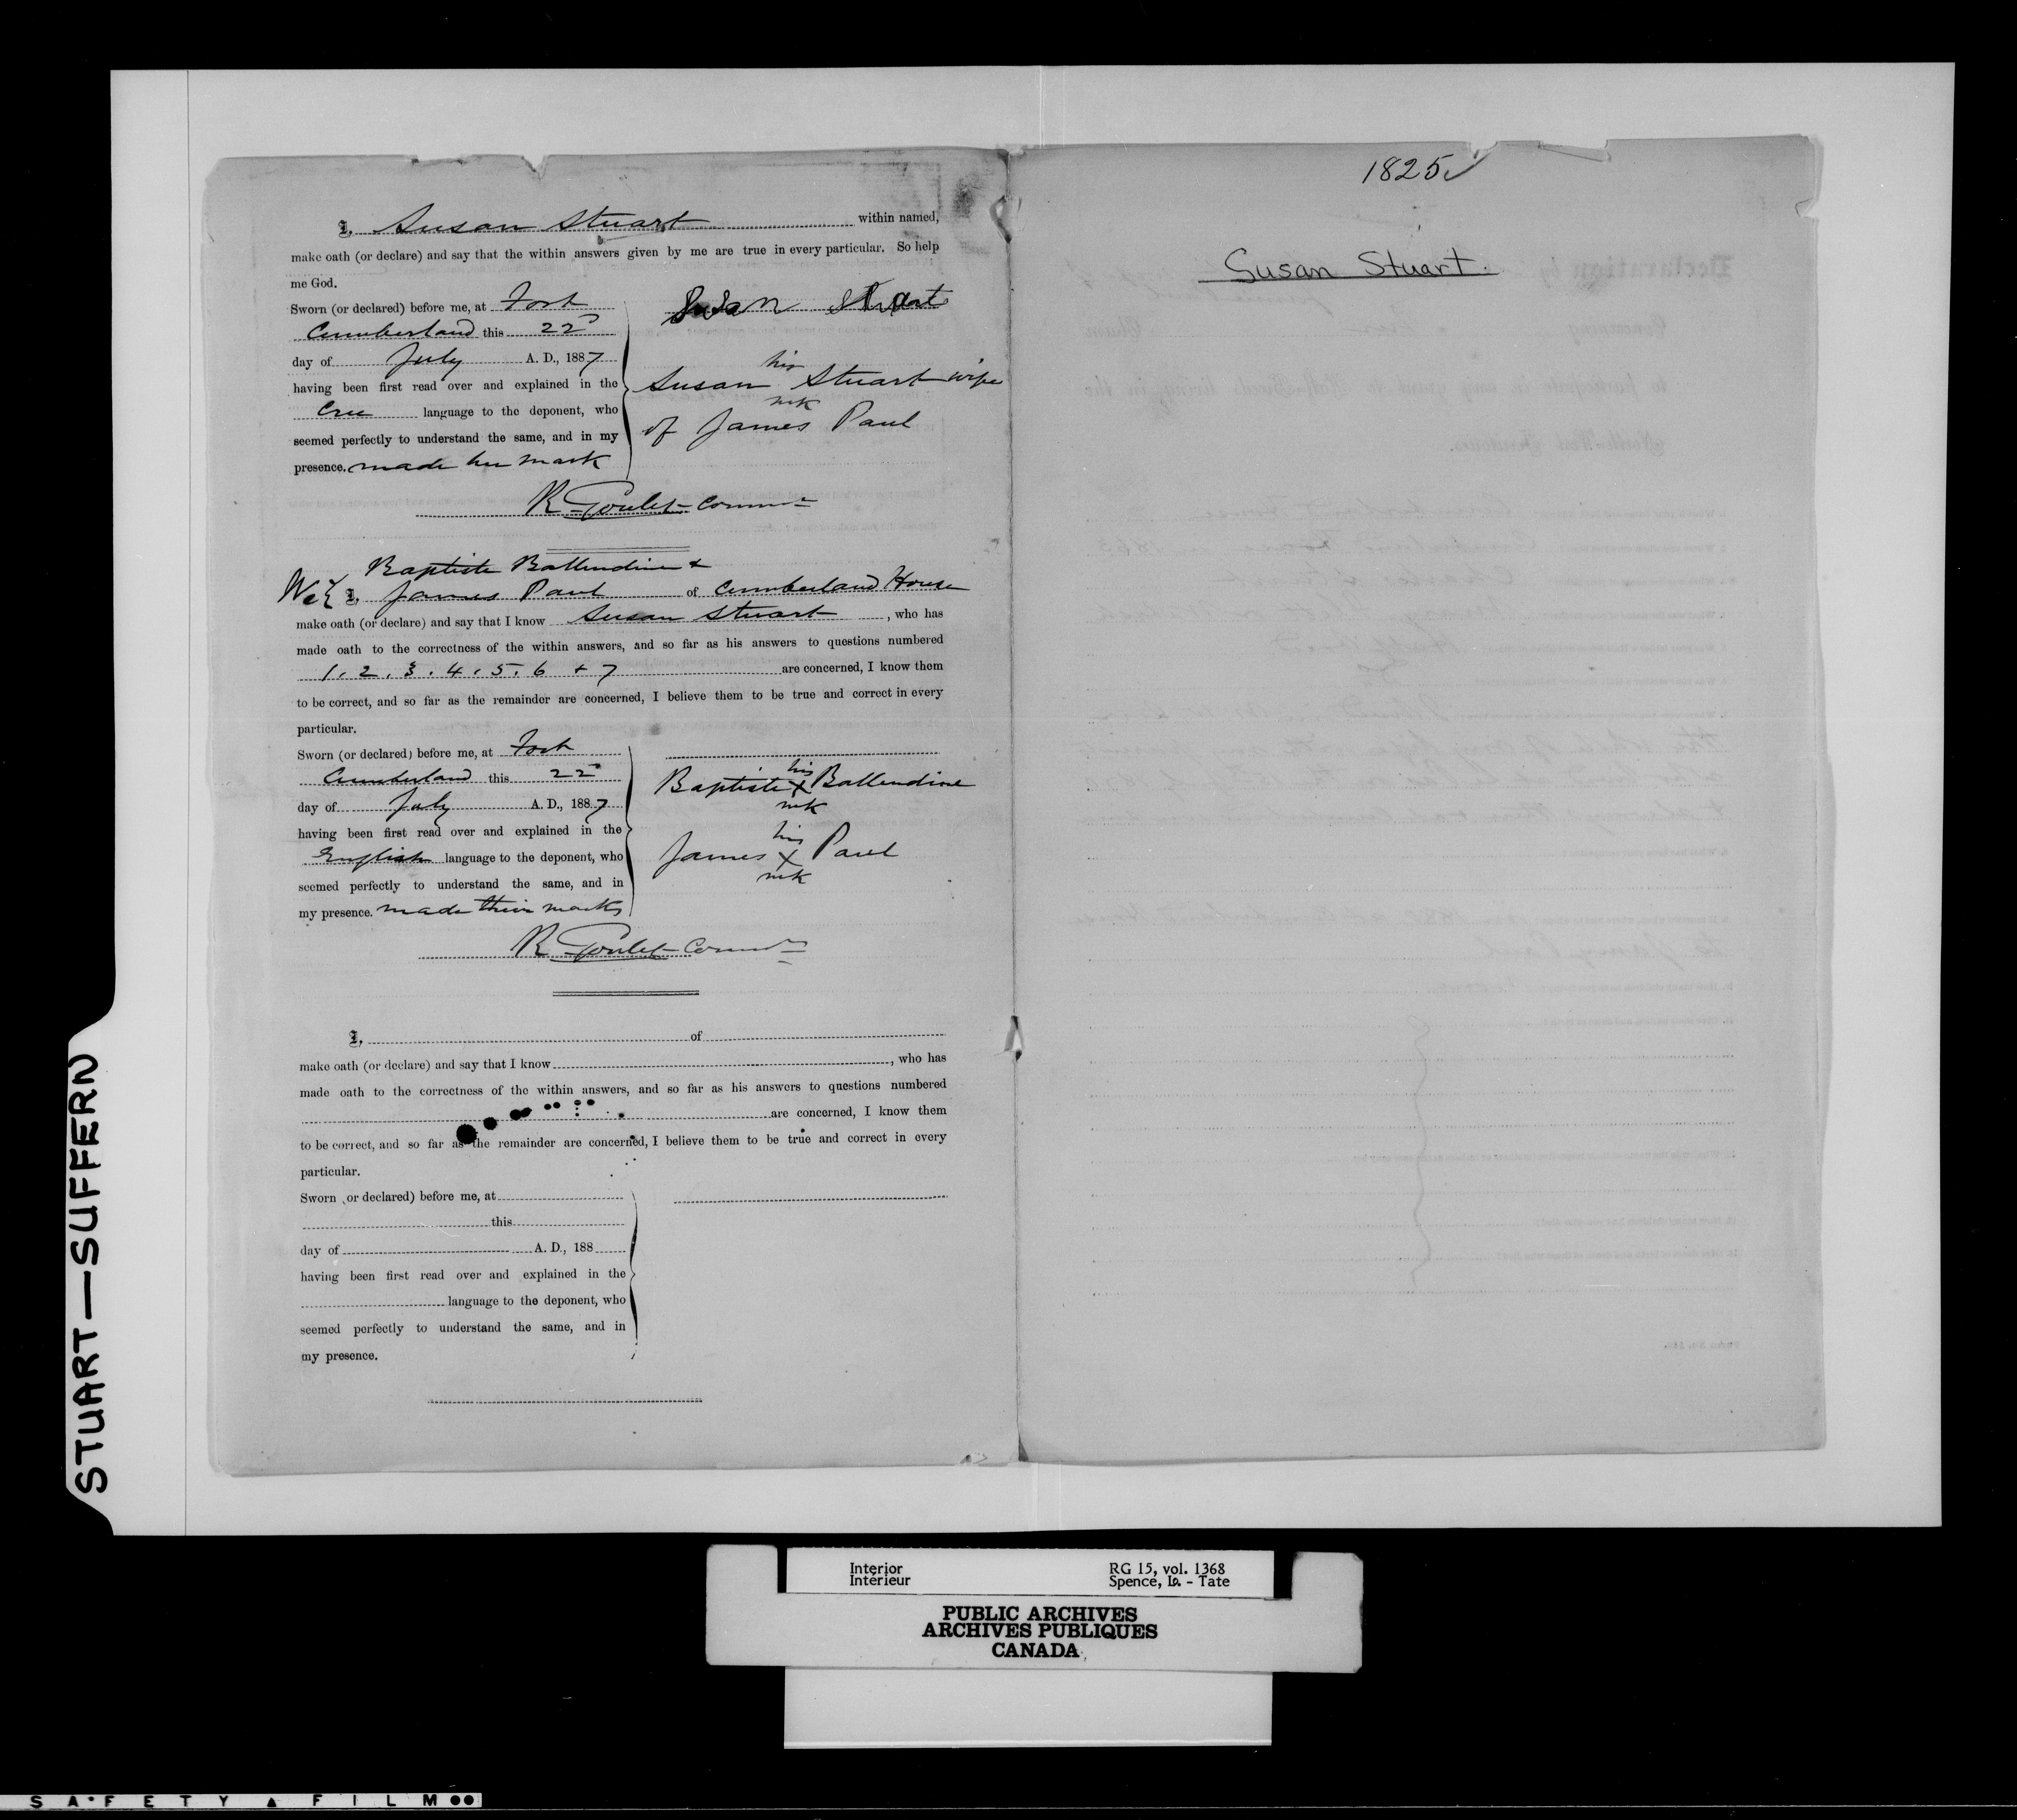 I, Susan Stuart within named,
make oath (or declare) and say that the within answers given by me are true in every particular. So help
me God.
Sworn (or declared) before me, at Fort
Cumberland this 22
day of July A. D., 1887
having been first read over and explained in the
Cree language to the deponent, who
seemed perfectly to understand the same, and in my
presence. made her mark
Susan Stuart
his
Susan Stuart wife
mk
of James Paul
R Goulet Commr
Baptiste Ballendine +
We { I, James Paul of Cumberland House
make oath (or declare) and say that I know Susan Stuart, who has
made oath to the correctness of the within answers, and so far as his answers to questions numbered
1. 2. 3. 4. 5. 6 + 7 are concerned, I know them
to be correct, and so far as the remainder are concerned, I believe them to be true and correct in every
particular.
Sworn (or declared) before me, at Fort
Cumberland this 22
day of July A. D., 1887
having been first read over and explained in the
English language to the deponent, who
seemed perfectly to understand the same, and in
my presence. made their marks
his
Baptiste X Ballendine
mk
his
James X Paul
mk
R Goulet Commr
I, of
make oath (or declare) and say that I know , who has
made oath to the correctness of the within answers, and so far as his answers to questions numbered
are concerned, I know them
to be correct, and so far as the remainder are concerned, I believe them to be true and correct in every
particular.
Sworn or declared) before me, at
this
day of A. D., 188
having been first read over and explained in the
language to the deponent, who
seemed perfectly to understand the same, and in
my presence.
1825
Susan Stuart.
STUART—SUFFERN
Interior
Intérieur
RG 15, vol. 1368
Spence, Is. - Tate
PUBLIC ARCHIVES
ARCHIVES PUBLIQUES
CANADA
SAFETY FILM